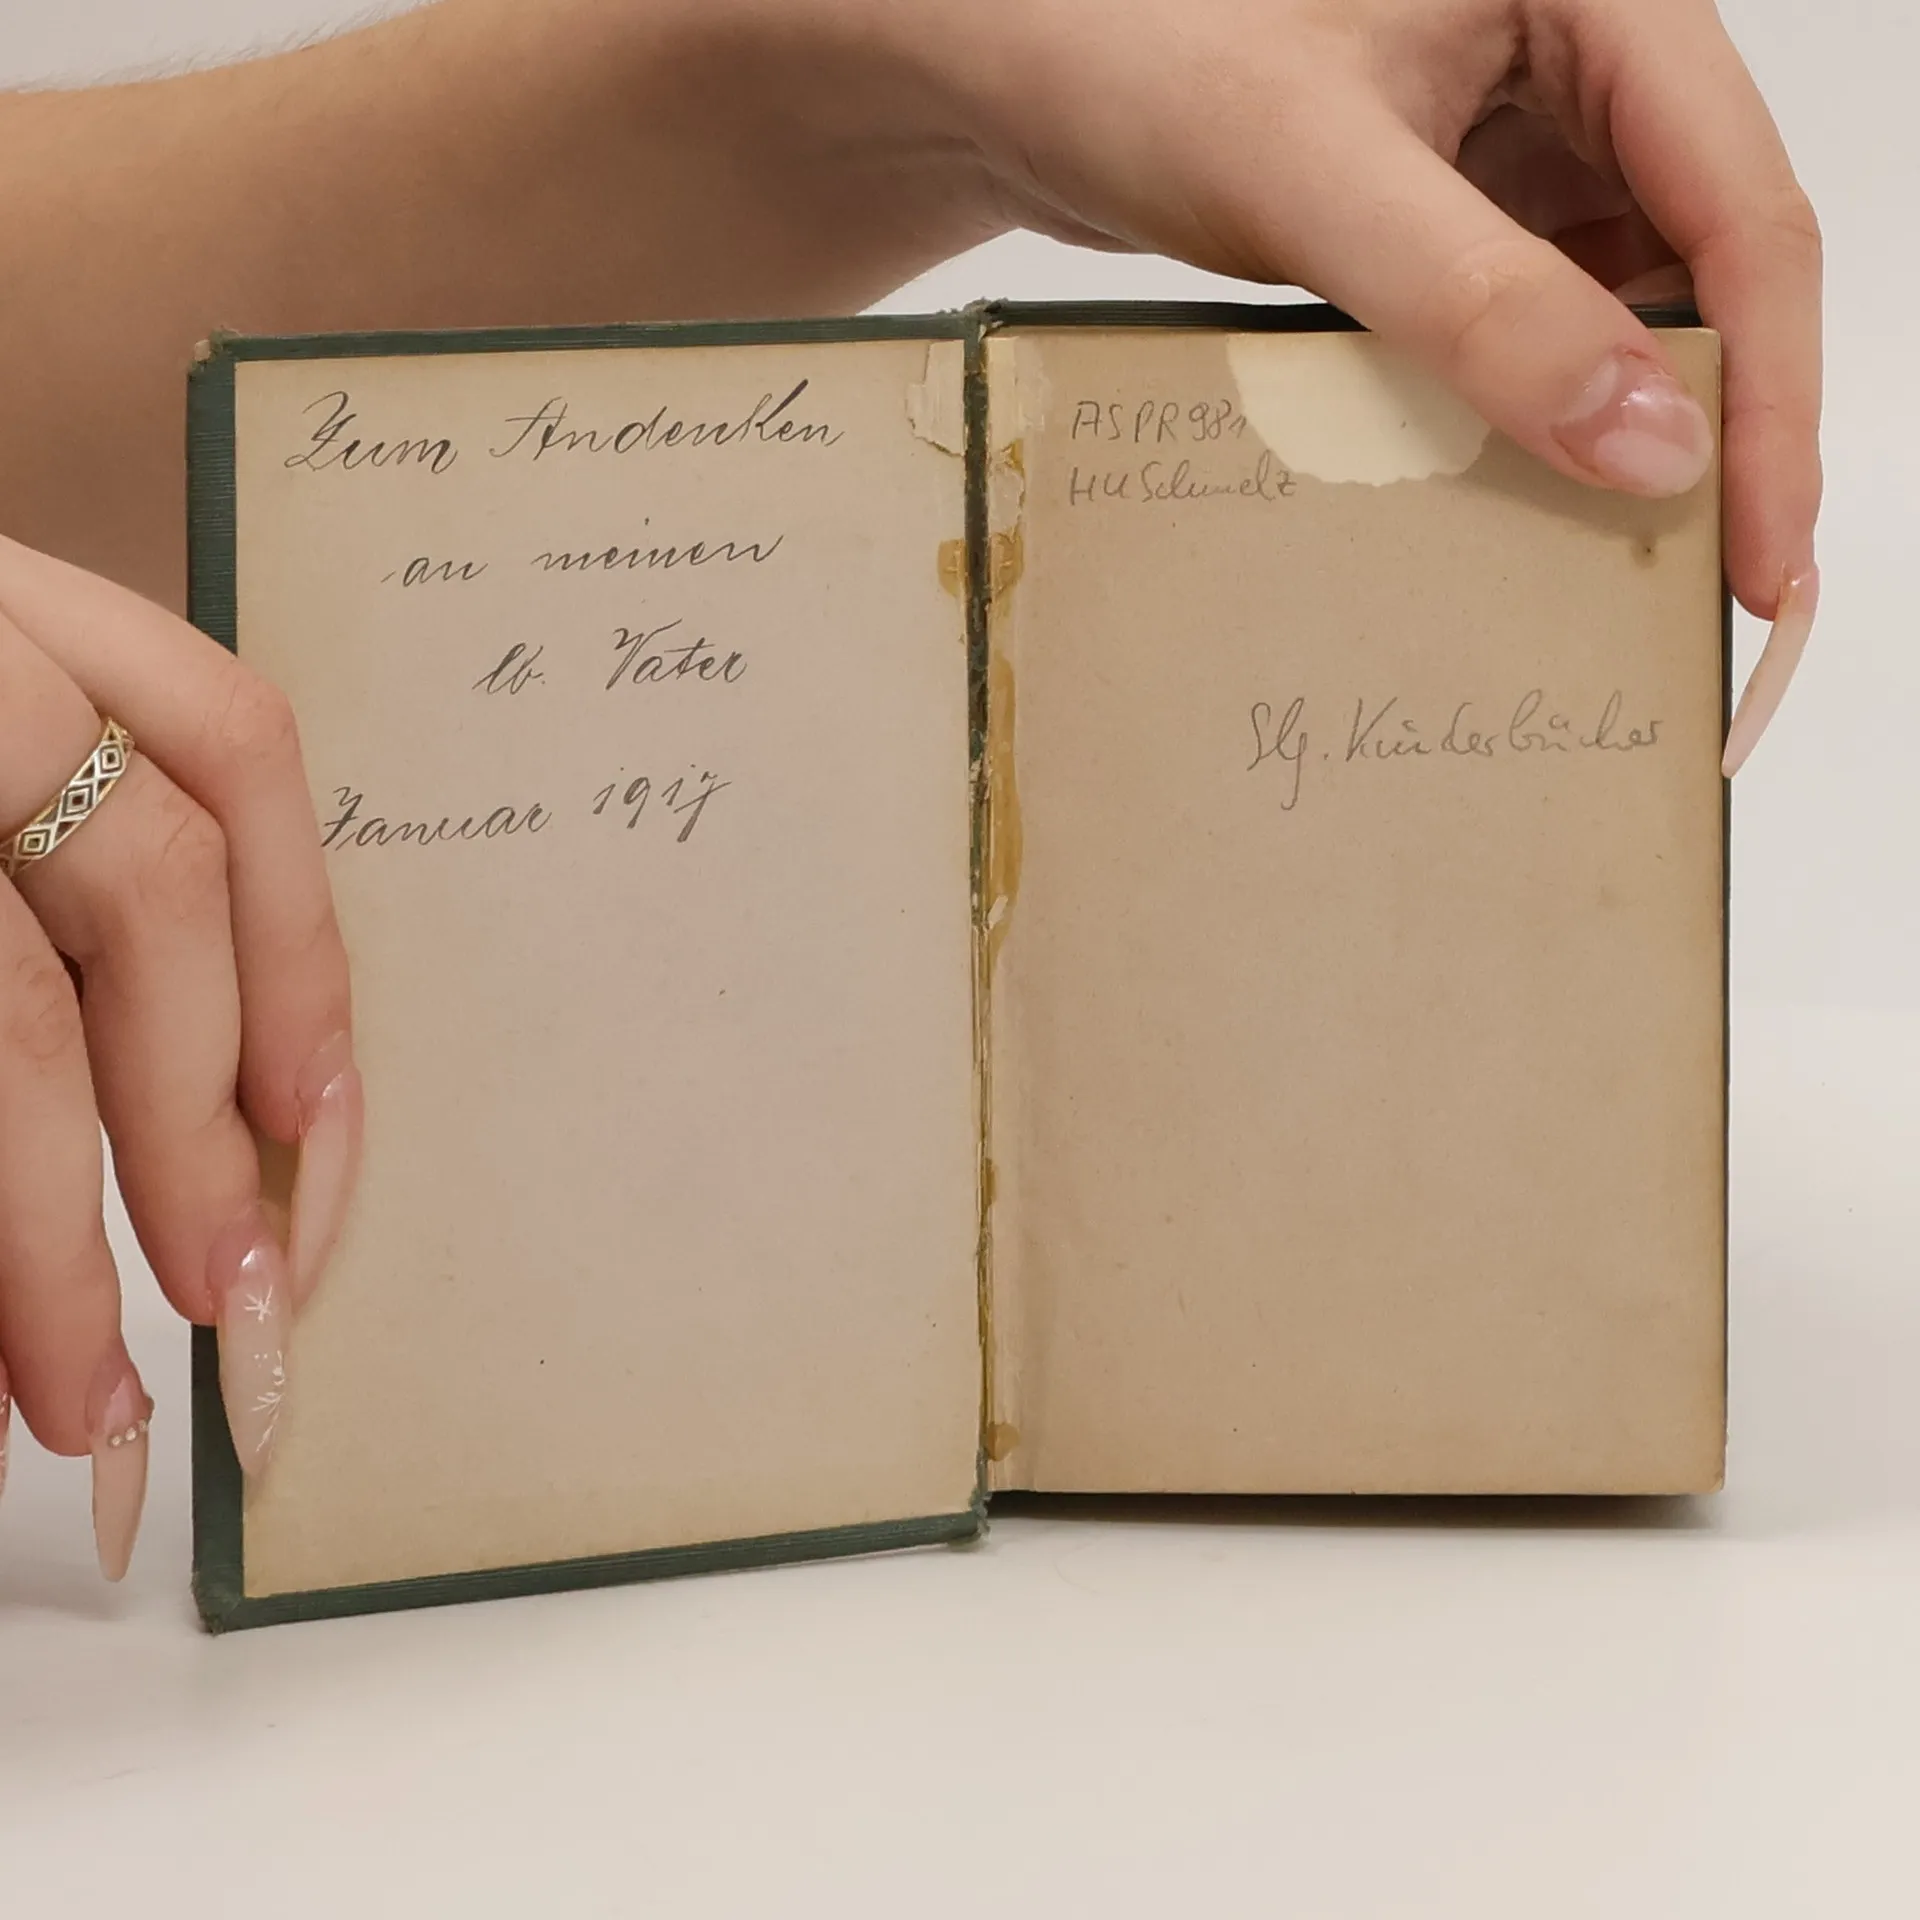 Zum Andenken
an meinen
lb. Vater
Januar 1917
ASPR981
HU Schmelz
Slg. Kinderbücher